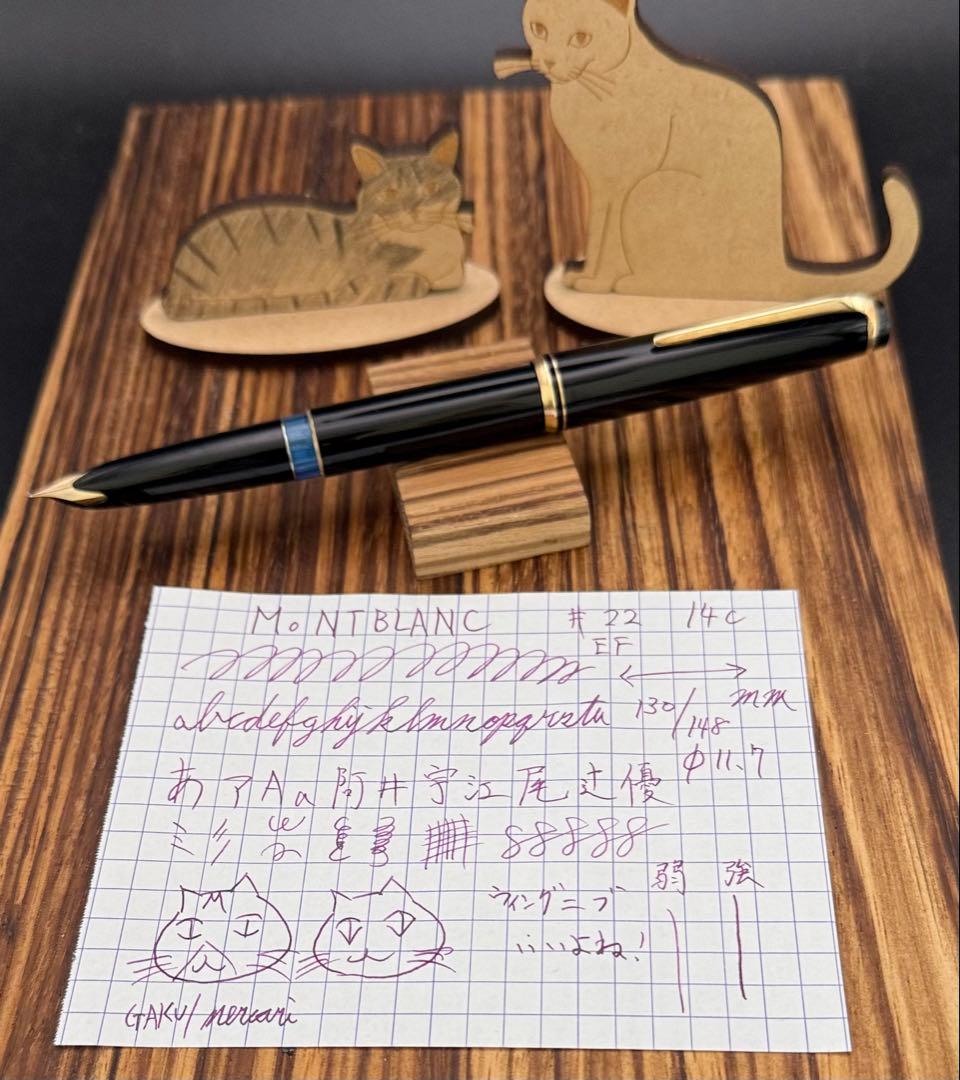 MoNTBLANC #22 14C
EF
abcdefghijklmnopqrstu 130/148 mm
φ11.7
あ ア A a 阿 井 宇 江 尾 辻 優
88888
弱 強
ウィングニブ
いいよね!
GAKU/mercari